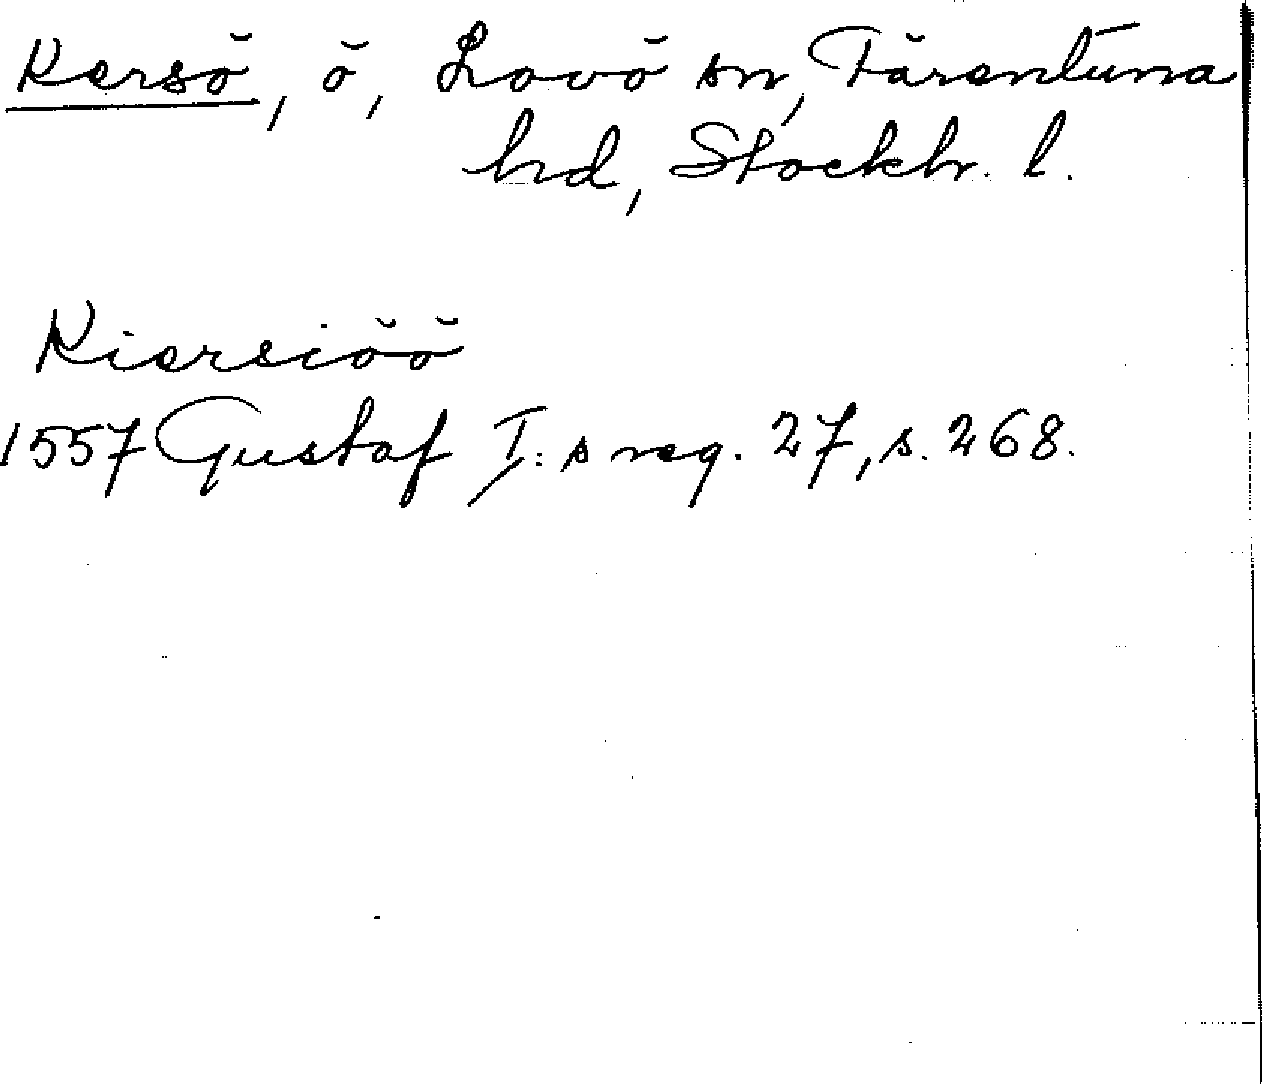 Kersö, ö, Lovö sn, Färentuna
hd, Stockh. l.
Kiersiöö
1557 Gustaf I:s reg. 27, s. 268.